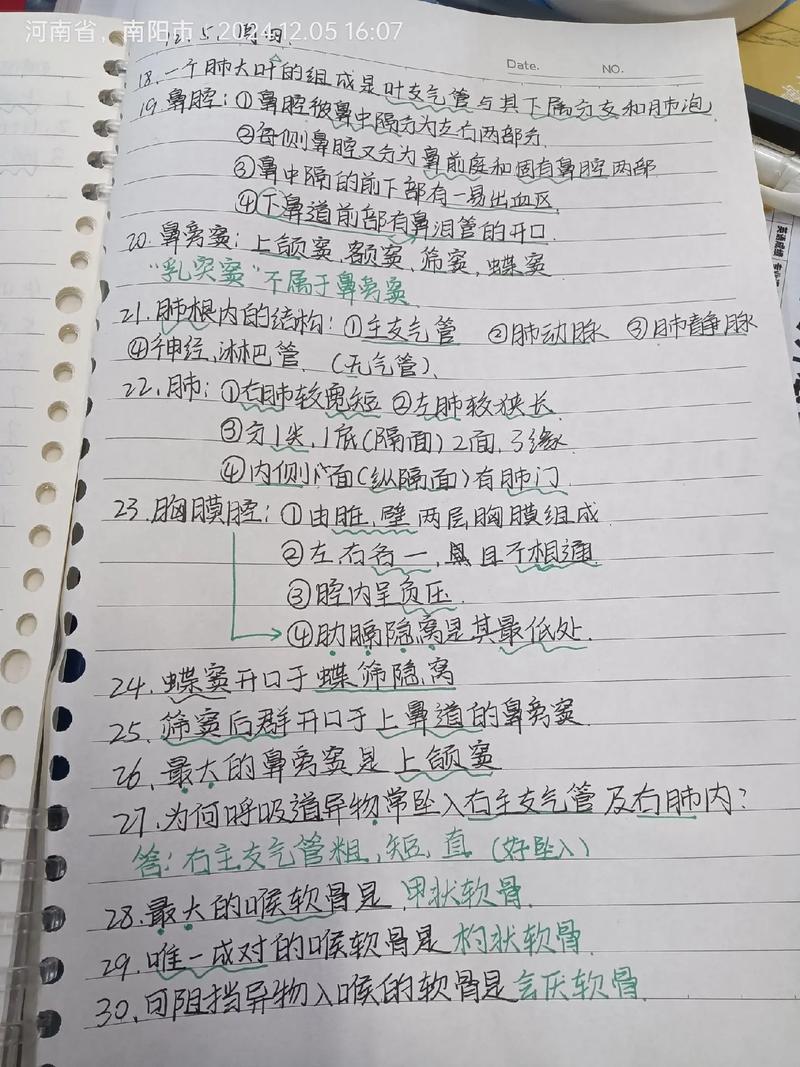 河南省，南阳市：2024.12.05 16:07
12.5.周四.
Date. NO.
18.一个肺大叶的组成是叶支气管与其下属分支和肺泡.
19.鼻腔：①鼻腔被鼻中隔分为左右两部分.
②每侧鼻腔又分为鼻前庭和固有鼻腔两部
③鼻中隔的前下部有一易出血区.
④下鼻道前部有鼻泪管的开口.
20.鼻旁窦：上颌窦.额窦.筛窦.蝶窦
“乳突窦”不属于鼻旁窦
21.肺根内的结构：①主支气管 ②肺动脉 ③肺静脉
④神经.淋巴管. (无气管).
22.肺：①右肺较宽短 ②左肺较狭长.
③分1尖,1底(隔面)2面,3缘.
④内侧面(纵隔面)有肺门.
23.胸膜腔：①由脏.壁两层胸膜组成.
②左.右各一.且不相通.
③腔内呈负压.
④肋膈隐窝是其最低处.
24.蝶窦开口于蝶筛隐窝
25.筛窦后群开口于上鼻道的鼻旁窦.
26.最大的鼻旁窦是上颌窦
27.为何呼吸道异物常坠入右主支气管及右肺内?
答：右主支气管粗,短,直 (好坠入)
28.最大的喉软骨是 甲状软骨.
29.唯一成对的喉软骨是杓状软骨.
30.可阻挡异物入喉的软骨是会厌软骨.